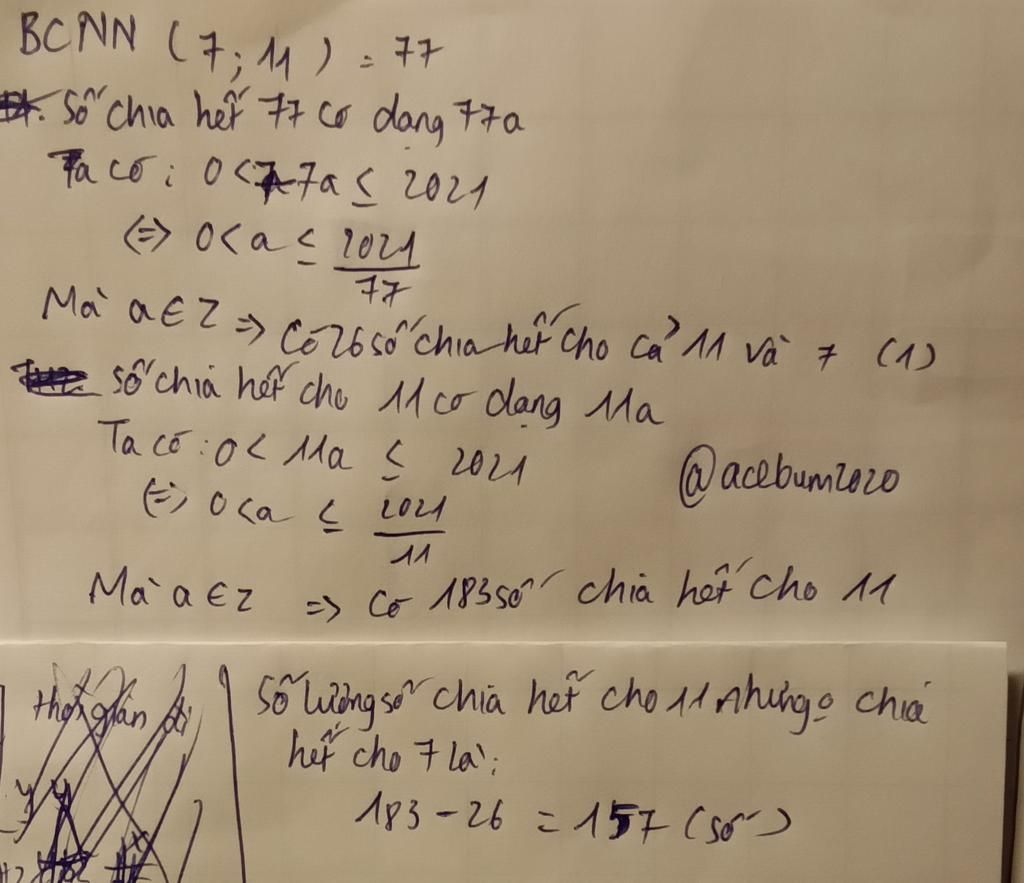 BCNN (7; 11) = 77
Số chia hết 77 có dạng 77a
Ta có: 0 < 77a ≤ 2021
(=) 0 < a ≤ 2021/77
Mà a ∈ Z => Có 26 số chia hết cho cả 11 và 7 (1)
Số chia hết cho 11 có dạng 11a
Ta có: 0 < 11a ≤ 2021
@acebum2020
(=) 0 < a ≤ 2021/11
Mà a ∈ Z => Có 183 số chia hết cho 11
Số lượng số chia hết cho 11 nhưng o chia
hết cho 7 là:
183 - 26 = 157 (số)
thời gian đi
y y